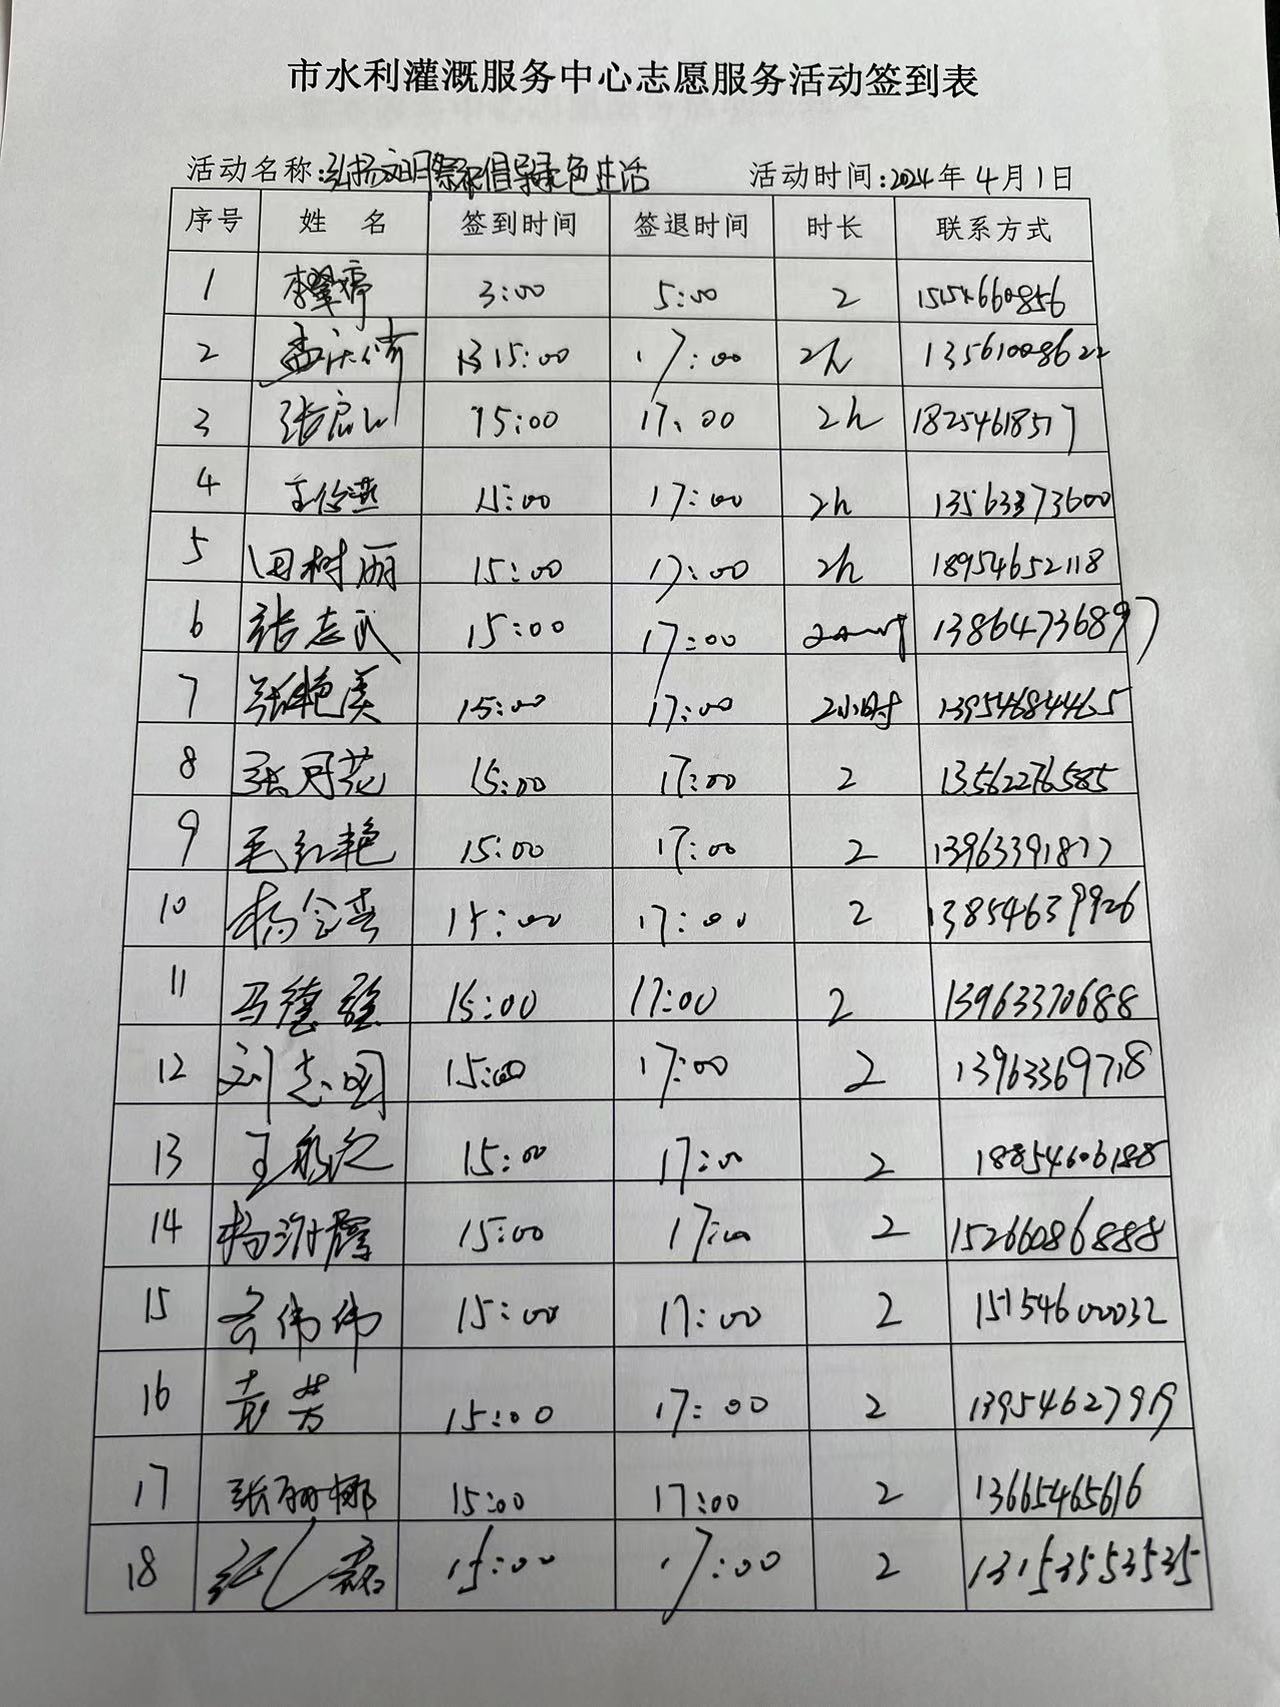 市水利灌溉服务中心志愿服务活动签到表
活动名称:弘扬文明祭祀倡导绿色生活 活动时间:2024年4月1日
序号 姓名 签到时间 签退时间 时长 联系方式
1 3:00 5:00 2 15154660856
2 15:00 17:00 2h 13561008622
3 15:00 17:00 2h 18254618517
4 15:00 17:00 2h 13563373600
5 田树丽 15:00 17:00 2h 18954652118
6 张志民 15:00 17:00 2小时 13864736897
7 张艳美 15:00 17:00 2小时 13954684465
8 张月花 15:00 17:00 2 13562276585
9 毛红艳 15:00 17:00 2 13963391877
10 15:00 17:00 2 13854639926
11 马德强 15:00 17:00 2 13963370688
12 刘志国 15:00 17:00 2 13963369718
13 15:00 17:00 2 18854606188
14 15:00 17:00 2 15266086888
15 15:00 17:00 2 15154600032
16 袁芳 15:00 17:00 2 13954627919
17 张丽娜 15:00 17:00 2 13665465616
18 15:00 17:00 2 13153553535